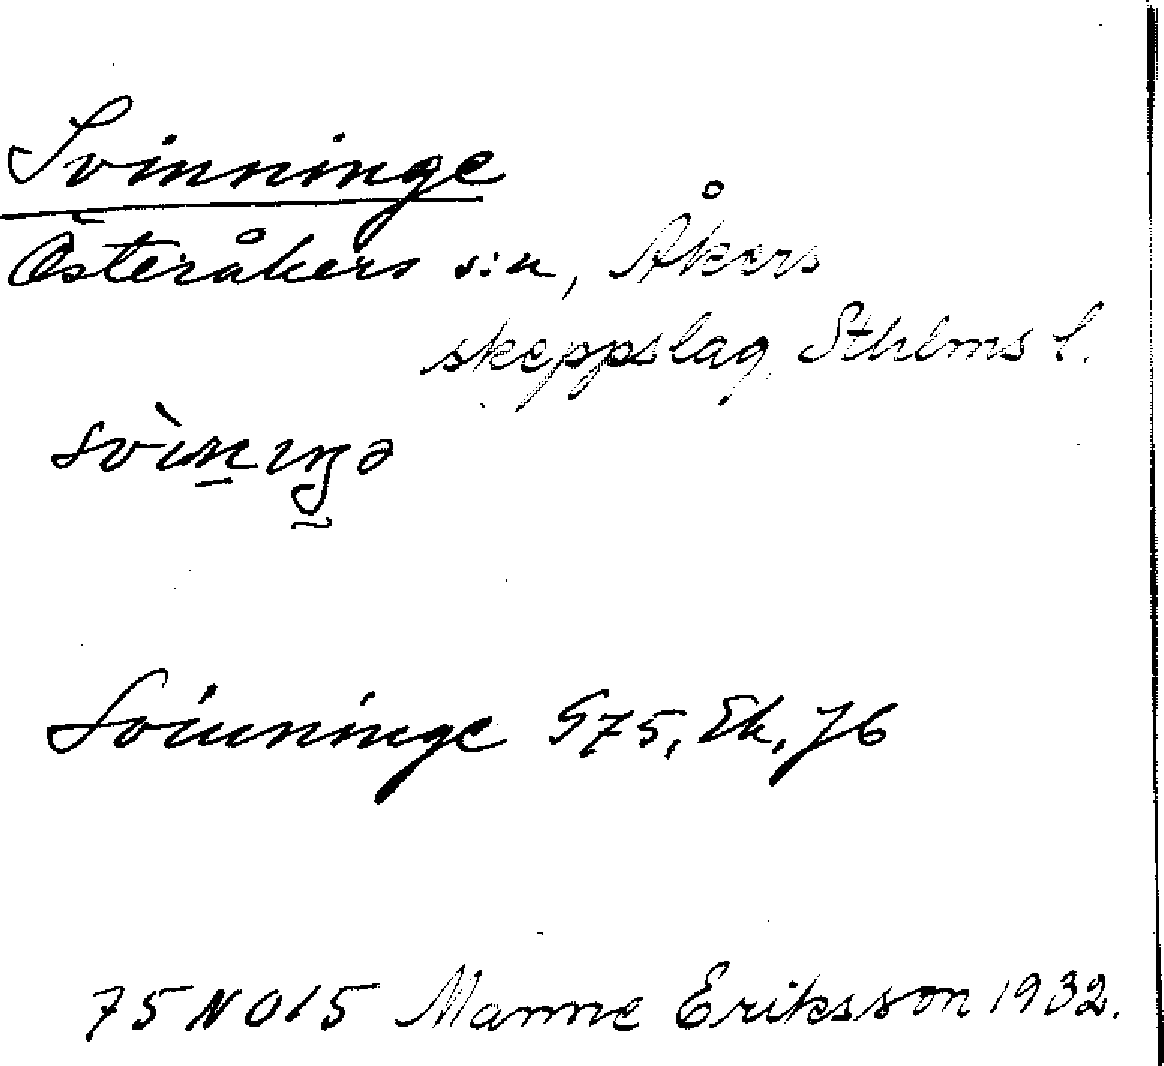 Svinninge
Österåkers s:n, Åkers
skeppslag, Sthlms l.
svìn̲ıŋə
Svinninge G75, Ek, J6
75 N O 15 Manne Eriksson 1932.